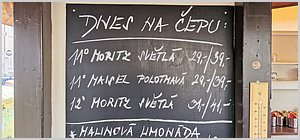 DNES NA ČEPU:
11° MORITZ SVĚTLÁ 29,-/39,-
11° HAISEL POLOTMAVÁ 29,-/39,-
12° MORITZ SVĚTLÁ 31,-/41,-
* MALINOVÁ LIMONÁDA